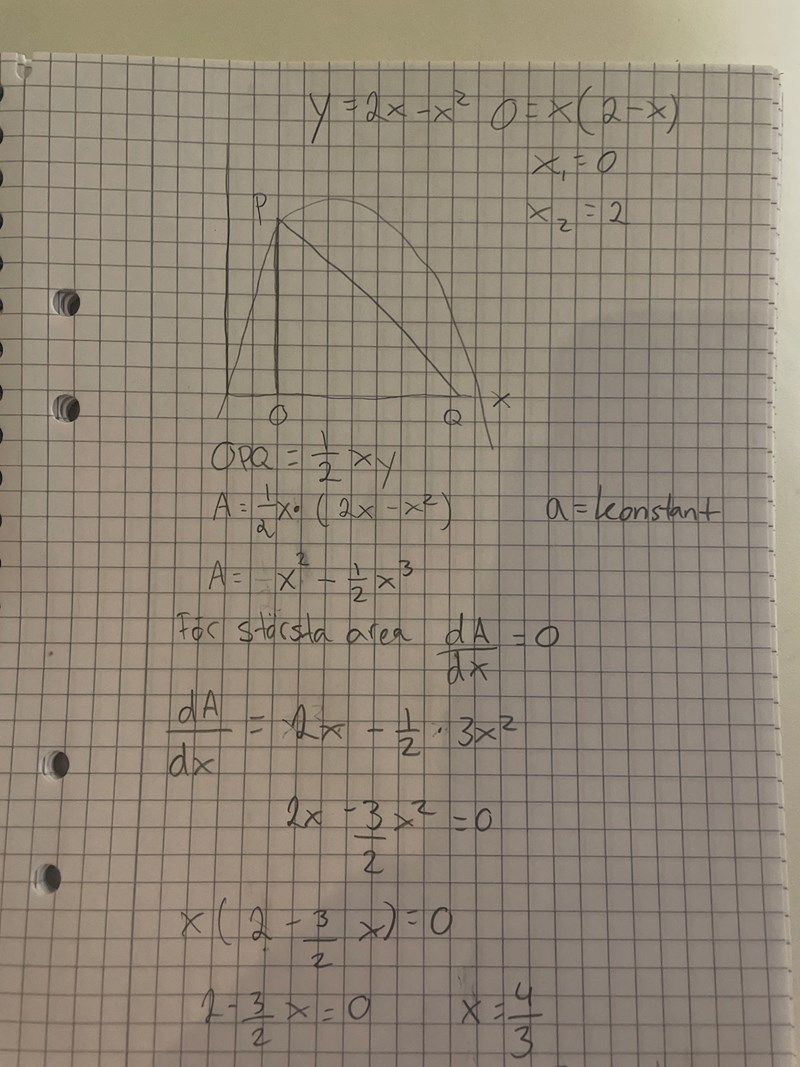 y = 2x - x² 0 = x(2-x)
x₁ = 0
x₂ = 2
P
O Q x
OPQ = 1/2 xy
A = 1/2 x · (2x - x²) a = konstant
A = x² - 1/2 x³
För största area dA/dx = 0
dA/dx = 2x - 1/2 · 3x²
2x - 3/2 x² = 0
x(2 - 3/2 x) = 0
2 - 3/2 x = 0 x = 4/3